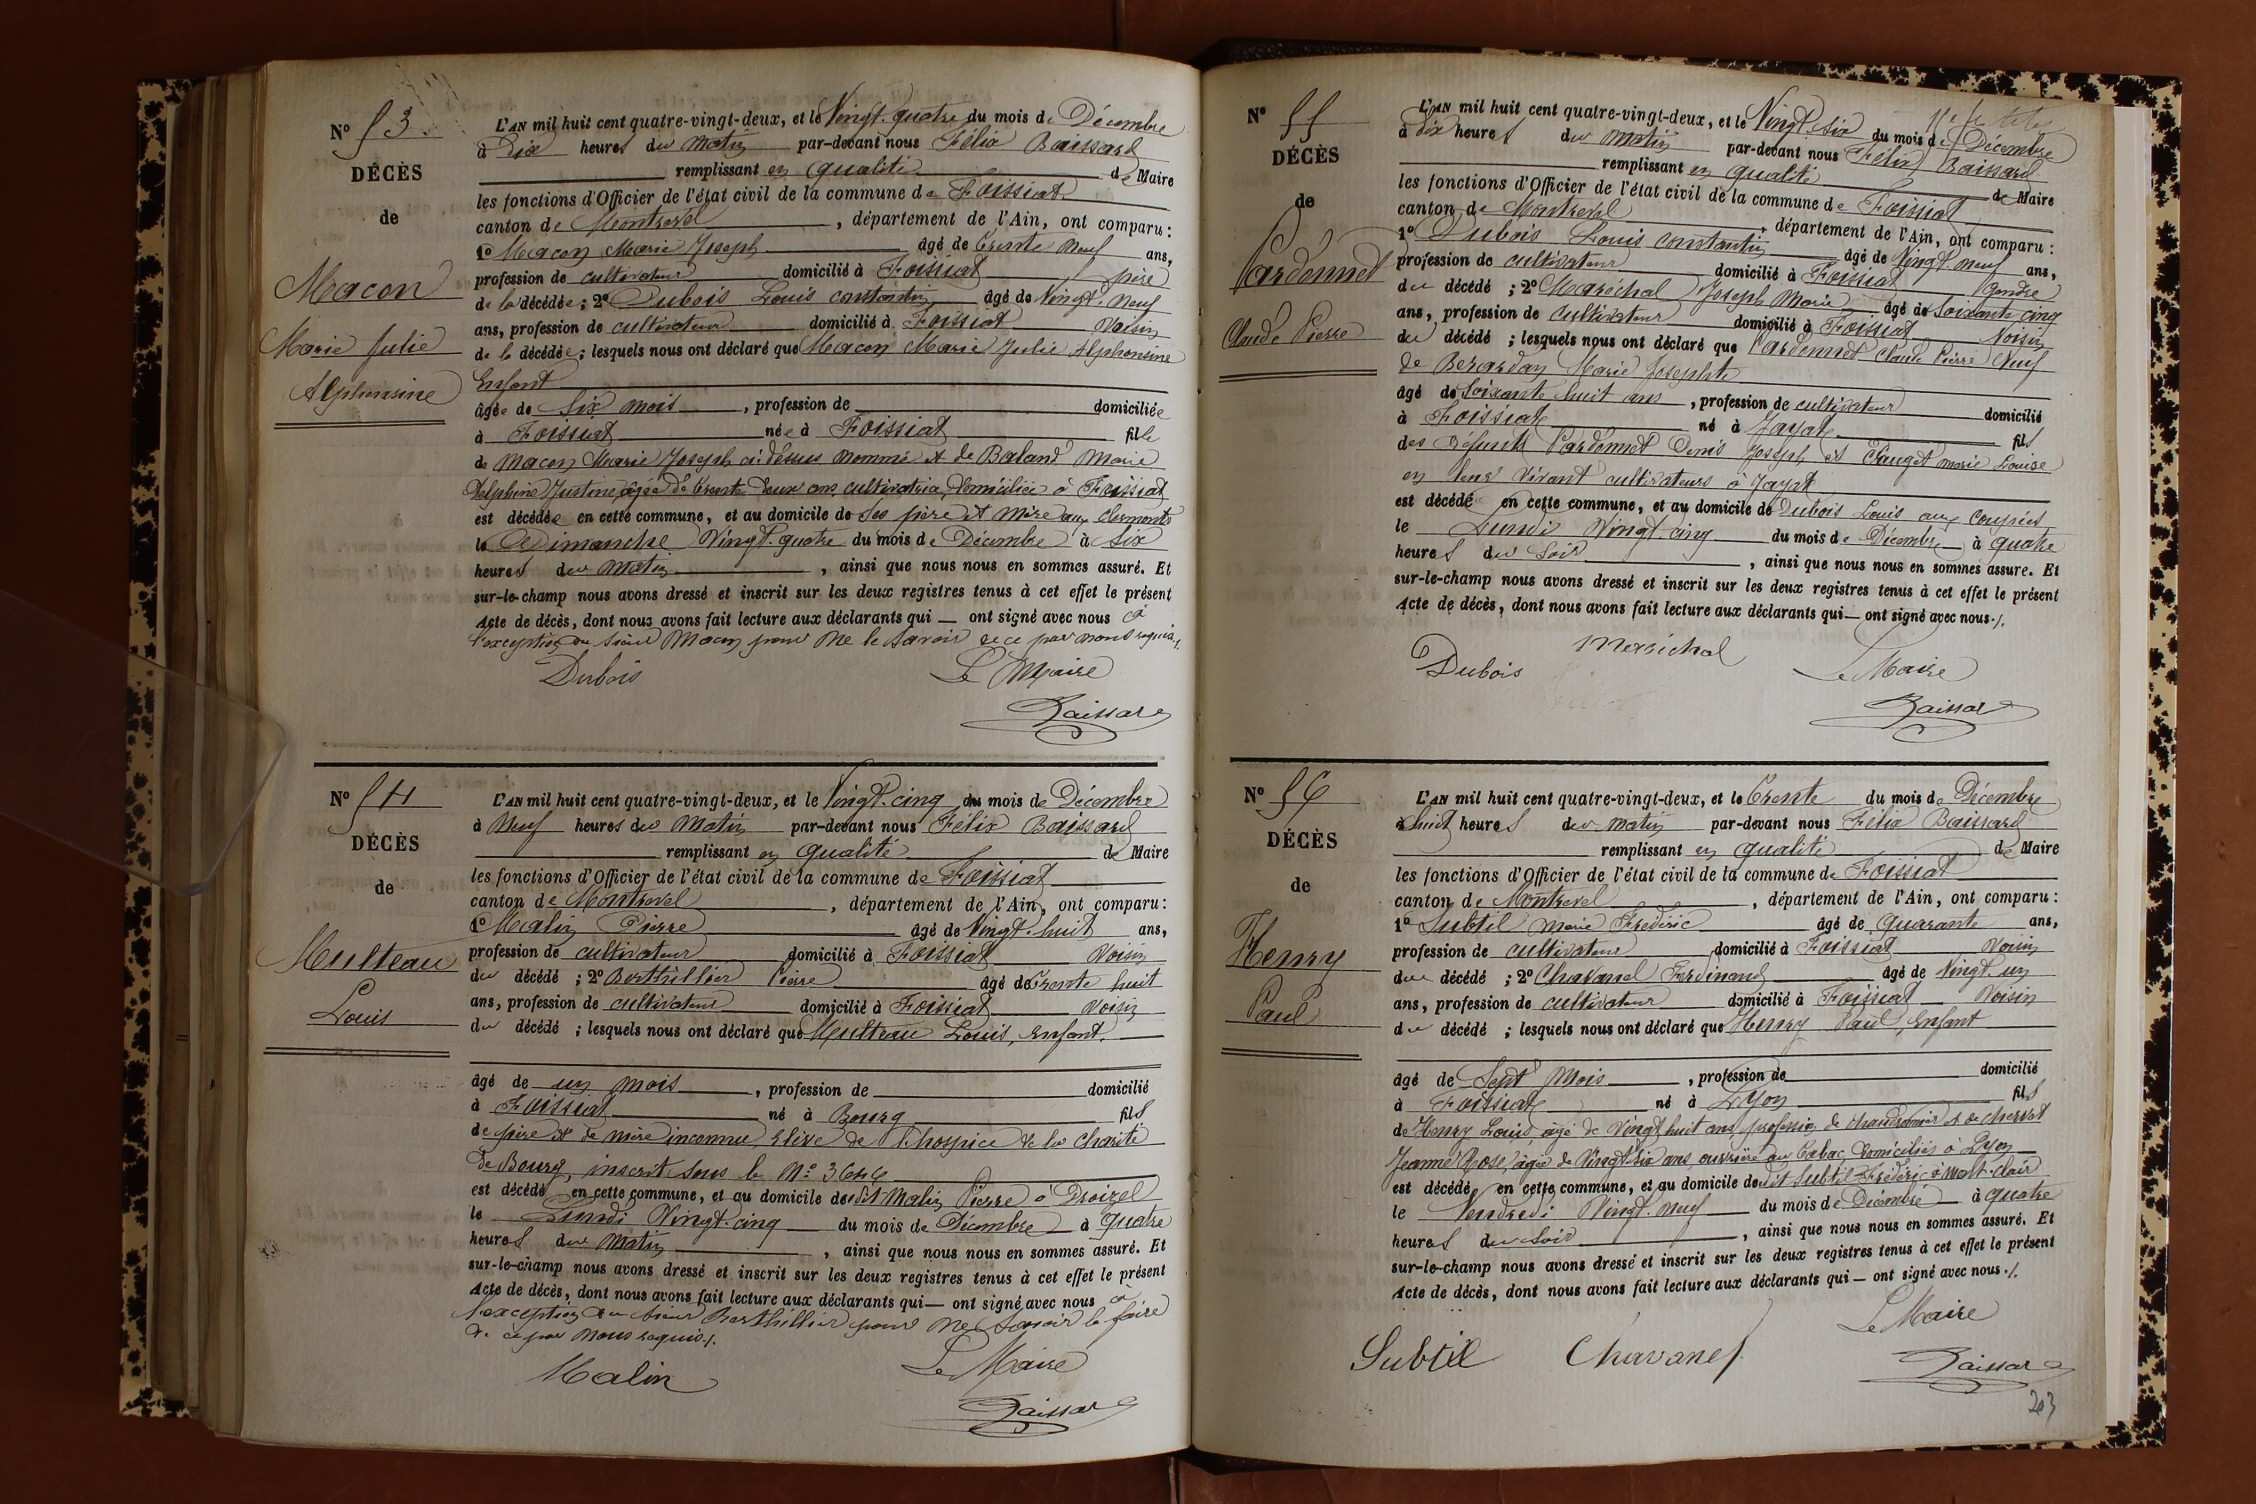 N° 53
DÉCÈS
de
Macon
Marie Julie
Alphonsine
L'AN mil huit cent quatre-vingt-deux, et le Vingt-quatre du mois de Décembre
à Dix heures du matin par-devant nous Félix Baissard
remplissant en qualité de Maire
les fonctions d'Officier de l'état civil de la commune de Foissiat
canton de Montrevel, département de l'Ain, ont comparu :
1° Macon Marie Joseph âgé de trente neuf ans,
profession de cultivateur domicilié à Foissiat père
de la décédée ; 2° Dubois Louis constantin âgé de Vingt-neuf
ans, profession de cultivateur domicilié à Foissiat Voisin
de la décédée ; lesquels nous ont déclaré que Macon Marie Julie Alphonsine
Enfant
âgée de Six mois, profession de domiciliée
à Foissiat née à Foissiat fille
de Macon Marie Joseph ci-dessus nommé et de Baland Marie
Delphine Justine, âgée de trente deux ans, cultivatrice, domiciliée à Foissiat
est décédée en cette commune, et au domicile de ses père et mère aux Clermonts
le Dimanche Vingt-quatre du mois de Décembre à Six
heures du matin, ainsi que nous nous en sommes assuré. Et
sur-le-champ nous avons dressé et inscrit sur les deux registres tenus à cet effet le présent
Acte de décès, dont nous avons fait lecture aux déclarants qui — ont signé avec nous à
l'exception du sieur Macon pour ne le savoir de ce par nous requis./.
Dubois Le Maire
Baissard
N° 54
DÉCÈS
de
Multeau
Louis
L'AN mil huit cent quatre-vingt-deux, et le Vingt-cinq du mois de Décembre
à Neuf heures du matin par-devant nous Félix Baissard
remplissant en qualité de Maire
les fonctions d'Officier de l'état civil de la commune de Foissiat
canton de Montrevel, département de l'Ain, ont comparu :
1° Malin Pierre âgé de Vingt-huit ans,
profession de cultivateur domicilié à Foissiat Voisin
du décédé ; 2° Berthillier Pierre âgé de trente huit
ans, profession de cultivateur domicilié à Foissiat Voisin
du décédé ; lesquels nous ont déclaré que Multeau Louis, Enfant.
âgé de un mois, profession de domicilié
à Foissiat né à Bourg fils
de père et de mère inconnu, Elève de l'hospice de la Charité
de Bourg, inscrit sous le N°
est décédé en cette commune, et au domicile du dit Malin Pierre à Droizel
le Lundi Vingt-cinq du mois de Décembre à quatre
heures du matin, ainsi que nous nous en sommes assuré. Et
sur-le-champ nous avons dressé et inscrit sur les deux registres tenus à cet effet le présent
Acte de décès, dont nous avons fait lecture aux déclarants qui — ont signé avec nous à
l'exception du sieur Berthillier pour ne savoir le faire
de ce par nous requis./.
Malin Le Maire
Baissard
N° 55
DÉCÈS
de
Pardonnet
Claude Pierre
L'AN mil huit cent quatre-vingt-deux, et le Vingt-six du mois de Décembre
à Dix heures du matin par-devant nous Félix Baissard
remplissant en qualité de Maire
les fonctions d'Officier de l'état civil de la commune de Foissiat
canton de Montrevel, département de l'Ain, ont comparu :
1° Dubois Louis constantin âgé de Vingt-neuf ans,
profession de cultivateur domicilié à Foissiat Gendre
du décédé ; 2° Maréchal Joseph Marie âgé de Soixante cinq
ans, profession de cultivateur domicilié à Foissiat Voisin
du décédé ; lesquels nous ont déclaré que Pardonnet Claude Pierre Veuf
de Berardan Marie Josephte
âgé de Soixante huit ans, profession de cultivateur domicilié
à Foissiat né à Jayat fils
des défunts Pardonnet Denis Joseph et Clauget marie Louise
en leur vivant cultivateurs à Jayat
est décédé en cette commune, et au domicile de Dubois Louis aux Coupées
le Lundi Vingt-cinq du mois de Décembre à quatre
heures du Soir, ainsi que nous nous en sommes assuré. Et
sur-le-champ nous avons dressé et inscrit sur les deux registres tenus à cet effet le présent
Acte de décès, dont nous avons fait lecture aux déclarants qui — ont signé avec nous./.
Dubois Meréchal Le Maire
Baissard
N° 56
DÉCÈS
de
Henry
Paul
L'AN mil huit cent quatre-vingt-deux, et le Trente du mois de Décembre
à huit heures du matin par-devant nous Félix Baissard
remplissant en qualité de Maire
les fonctions d'Officier de l'état civil de la commune de Foissiat
canton de Montrevel, département de l'Ain, ont comparu :
1° Subtil Marie Frédéric âgé de quarante ans,
profession de cultivateur domicilié à Foissiat Voisin
du décédé ; 2° Chavanel Ferdinand âgé de Vingt-un
ans, profession de cultivateur domicilié à Foissiat Voisin
du décédé ; lesquels nous ont déclaré que Henry Paul, Enfant
âgé de Sept Mois, profession de domicilié
à Foissiat né à Lyon fils
de Henry Louis, âgé de Vingt huit ans, profession de chaudronnier et de
Jeanne Rose, âgée de Vingt-six ans, ouvrière au Tabac, domiciliés à Lyon
est décédé en cette commune, et au domicile du dit Subtil Frédéric à
le Vendredi Vingt-neuf du mois de Décembre à quatre
heures du Soir, ainsi que nous nous en sommes assuré. Et
sur-le-champ nous avons dressé et inscrit sur les deux registres tenus à cet effet le présent
Acte de décès, dont nous avons fait lecture aux déclarants qui — ont signé avec nous./.
Le Maire
Subtil Chavanel Baissard
203